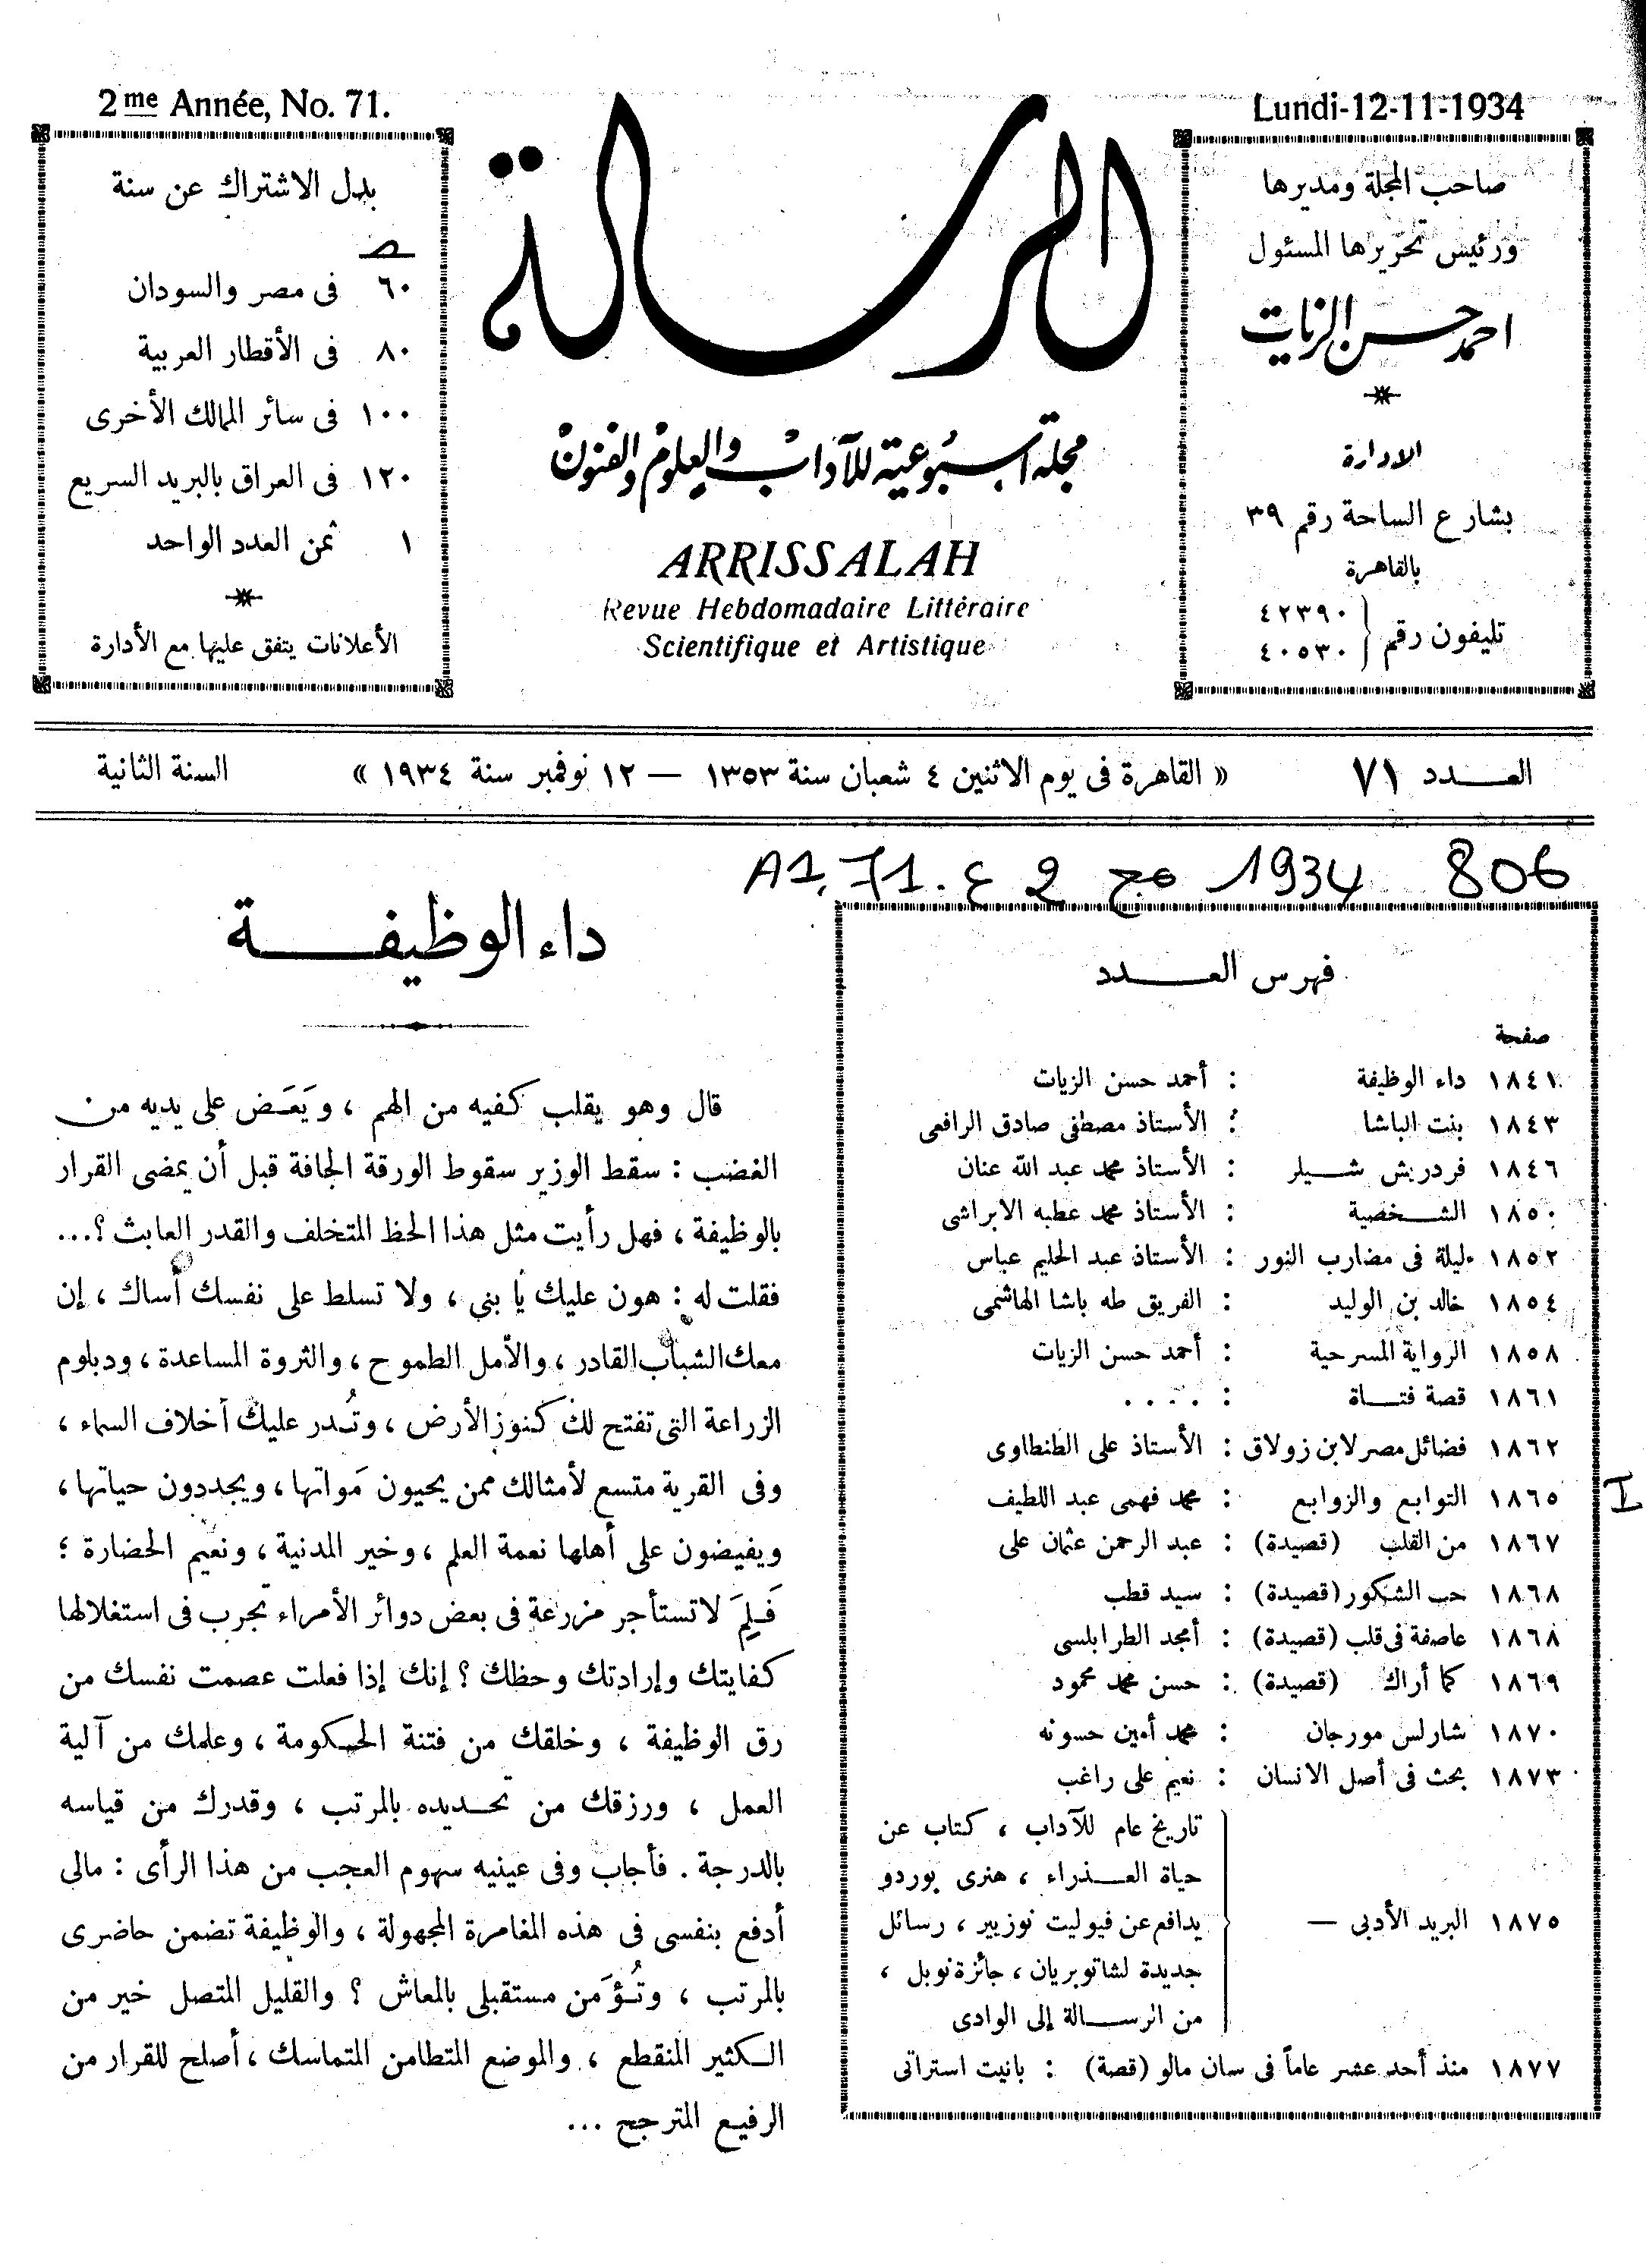 2me Année, No. 71.
Lundi-12-11-1934
صاحب المجلة ومديرها
ورئيس تحريرها المسئول
احمد حسن الزيات
الادارة
بشارع الساحة رقم ٣٩
بالقاهرة
تليفون رقم
٤٢٣٩٠
٤٠٥٣٠
الرسالة
مجلة أسبوعية للآداب والعلوم والفنون
ARRISSALAH
Revue Hebdomadaire Littéraire
Scientifique et Artistique
بدل الاشتراك عن سنة
ص
٦٠ فى مصر والسودان
٨٠ فى الأقطار العربية
١٠٠ فى سائر الممالك الأخرى
١٢٠ فى العراق بالبريد السريع
١ ثمن العدد الواحد
الأعلانات يتفق عليها مع الأدارة
العـــدد ٧١ « القاهرة فى يوم الاثنين ٤ شعبان سنة ١٣٥٣ — ١٢ نوفمبر سنة ١٩٣٤ » السنة الثانية
A1, 71. ع 2 مج 1934 806
فهرس العـــدد
صفحة
١٨٤١ داء الوظيفة : أحمد حسن الزيات
١٨٤٣ بنت الباشا : الأستاذ مصطفى صادق الرافعى
١٨٤٦ فردريش شـــيلر : الأستاذ محمد عبد الله عنان
١٨٥٠ الشـــخصية : الأستاذ محمد عطيه الابراشى
١٨٥٢ ليلة فى مضارب النور : الأستاذ عبد الحليم عباس
١٨٥٤ خالد بن الوليد : الفريق طه باشا الهاشمى
١٨٥٨ الرواية المسرحية : أحمد حسن الزيات
١٨٦١ قصة فتـــاة : . . . .
١٨٦٢ فضائل مصر لابن زولاق : الأستاذ على الطنطاوى
١٨٦٥ التوابع والزوابع : محمد فهمى عبد اللطيف
I
١٨٦٧ من القلب (قصيدة) : عبد الرحمن عثمان على
١٨٦٨ حب الشكور (قصيدة) : سيد قطب
١٨٦٨ عاصفة فى قلب (قصيدة) : أمجد الطرابلسى
١٨٦٩ كما أراك (قصيدة) : حسن محمد محمود
١٨٧٠ شارلس مورجان : محمد أمين حسونه
١٨٧٣ بحث فى أصل الانسان : نعيم على راغب
١٨٧٥ البريد الأدبى —
تاريخ عام للآداب ، كتاب عن
حياة العـــذراء ، هنرى بوردو
يدافع عن فيوليت نوزيير ، رسائل
جديدة لشاتوبريان ، جائزة نوبل ،
من الرســـالة إلى الوادى
١٨٧٧ منذ أحد عشر عاماً فى سان مالو (قصة) : بانيت استراتى
داء الوظيفـــــة
قال وهو يقلب كفيه من الهم ، ويَعَـض على يديه من
الغضب : سقط الوزير سقوط الورقة الجافة قبل أن يمضى القرار
بالوظيفة ، فهل رأيت مثل هذا الحظ المتخلف والقدر العابث ؟...
فقلت له : هون عليك يا بنى ، ولا تسلط على نفسك أساك ، إن
معك الشباب القادر ، والأمل الطموح ، والثروة المساعدة ، ودبلوم
الزراعة التى تفتح لك كنوز الأرض ، وتُـدر عليك أخلاف السماء ،
وفى القرية متسع لأمثالك ممن يحيون مَواتها ، ويجددون حياتها ،
ويفيضون على أهلها نعمة العلم ، وخير المدنية ، ونعيم الحضارة ؛
فَـلِمَ لا تستأجر مزرعة فى بعض دوائر الأمراء تجرب فى استغلالها
كفايتك وإرادتك وحظك ؟ إنك إذا فعلت عصمت نفسك من
رق الوظيفة ، وخلقك من فتنة الحكومة ، وعلمك من آلية
العمل ، ورزقك من تحـــديده بالمرتب ، وقدرك من قياسه
بالدرجة . فأجاب وفى عينيه سهوم العجب من هذا الرأى : مالى
أدفع بنفسى فى هذه المغامرة المجهولة ، والوظيفة تضمن حاضرى
بالمرتب ، وتُـؤَمن مستقبلى بالمعاش ؟ والقليل المتصل خير من
الكثير المنقطع ، والموضع المتطامن المتماسك ، أصلح للقرار من
الرفيع المترجح ...